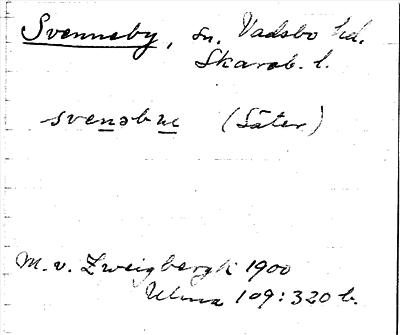 Svenneby, sn. Vadsbo hd.
Skarab. l.
svenəbɯ (Säter)
M. v. Zweigbergk 1900
Ulma 109:320 b.